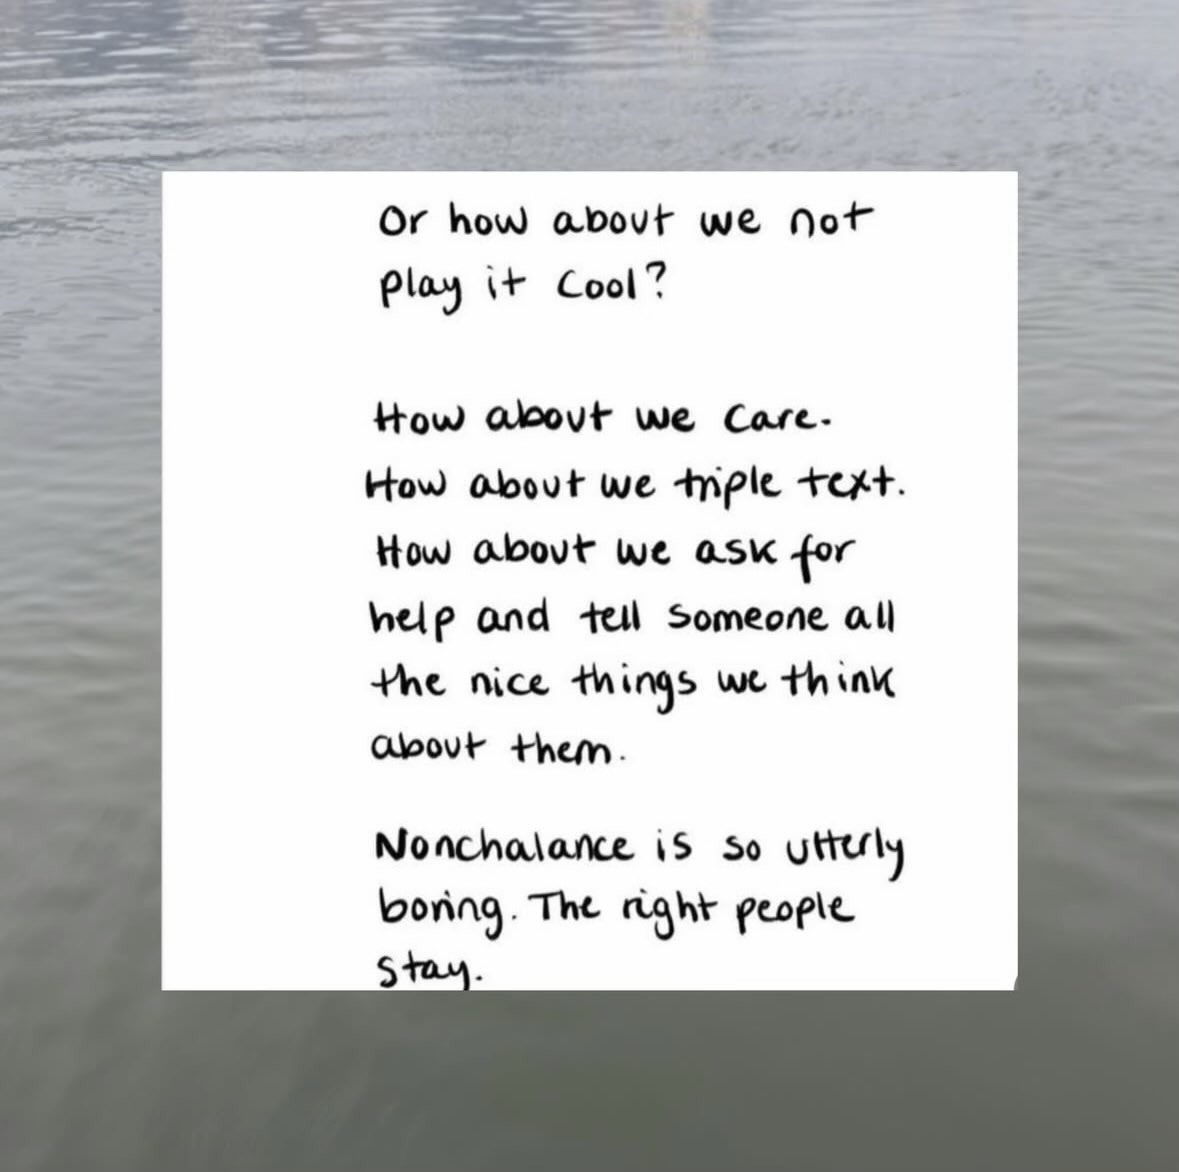 Or how about we not
play it cool?
How about we care.
How about we triple text.
How about we ask for
help and tell someone all
the nice things we think
about them.
Nonchalance is so utterly
boring. The right people
stay.